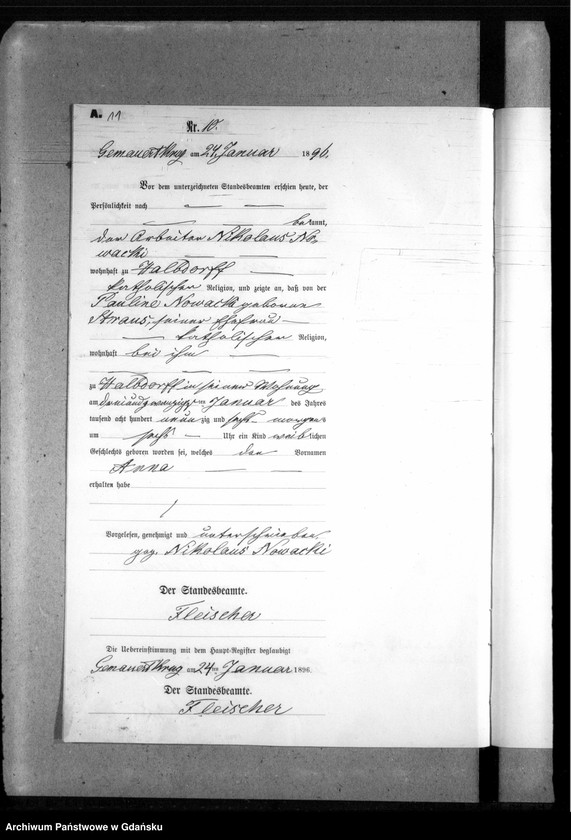 A. 11
Nr. 10.
Gemauert Krug am 24. Januar 1896.
Vor dem unterzeichneten Standesbeamten erschien heute, der
Persönlichkeit nach
bekannt,
der Arbeiter Nikolaus No-
wacki
wohnhaft zu Waldorff
katholischer Religion, und zeigte an, daß von der
Pauline Nowacki geborene
Straus, seiner Ehefrau
katholischer Religion,
wohnhaft bei ihm
zu Waldorff in seiner Wohnung
am dreiundzwanzigsten Januar des Jahres
tausend acht hundert neunzig und sechs morgens
um sechs Uhr ein Kind weiblichen
Geschlechts geboren worden sei, welches den Vornamen
Anna
erhalten habe
Vorgelesen, genehmigt und unterschrieben
gez. Nikolaus Nowacki
Der Standesbeamte.
Fleischer
Die Uebereinstimmung mit dem Haupt-Register beglaubigt
Gemauert Krug am 24ten Januar 1896.
Der Standesbeamte.
Fleischer
Archiwum Państwowe w Gdańsku